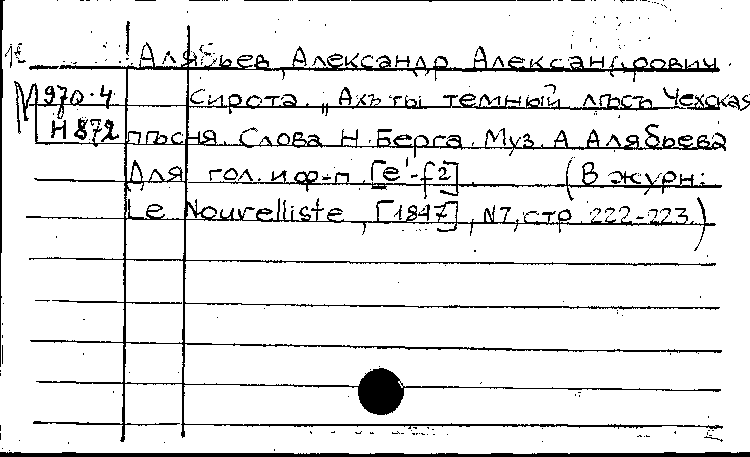 Алябьев, Александр Александрович
М 970.4 Сирота. „Ахъ ты темный лѣсъ Чехская
Н 872 пѣсня. Слова Н. Берга. Муз. А Алябьева
Для гол. и ф-п. [e'-f2] (В журн:
Le Nouvelliste, [1847], N7, стр 222-223.)